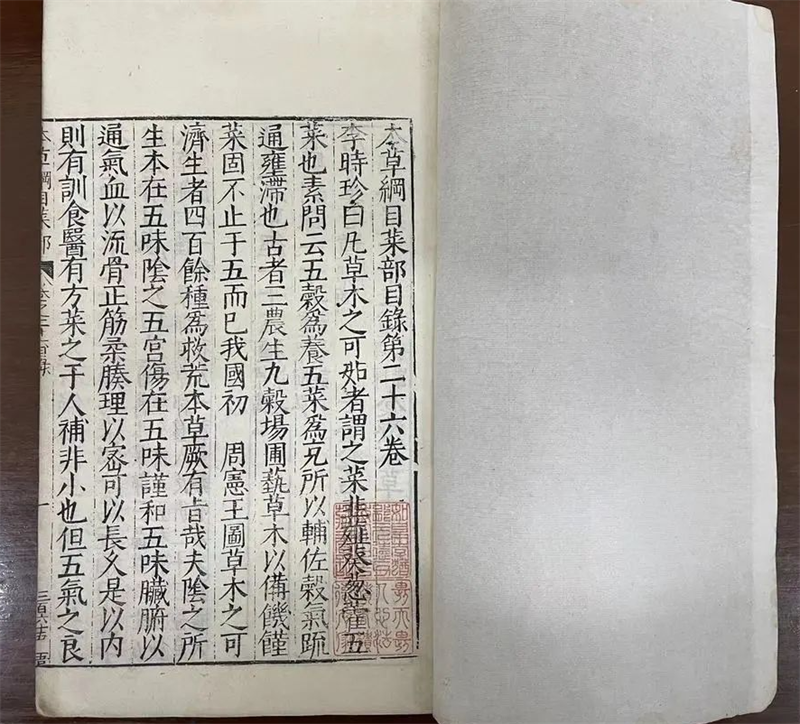 本草綱目菜部目錄第二十六卷
李時珍曰凡草木之可茹者謂之菜韭薤葵葱藿五
菜也素問云五穀爲養五菜爲充所以輔佐穀氣疏
通壅滯也古者三農生九穀場圃蓺草木以備饑饉
菜固不止于五而已我國初　周憲王圖草木之可
濟生者四百餘種爲救荒本草厥有旨哉夫陰之所
生本在五味陰之五宫傷在五味謹和五味臟腑以
通氣血以流骨正筋柔腠理以密可以長久是以内
則有訓食醫有方菜之于人補非小也但五氣之良
本草綱目菜部